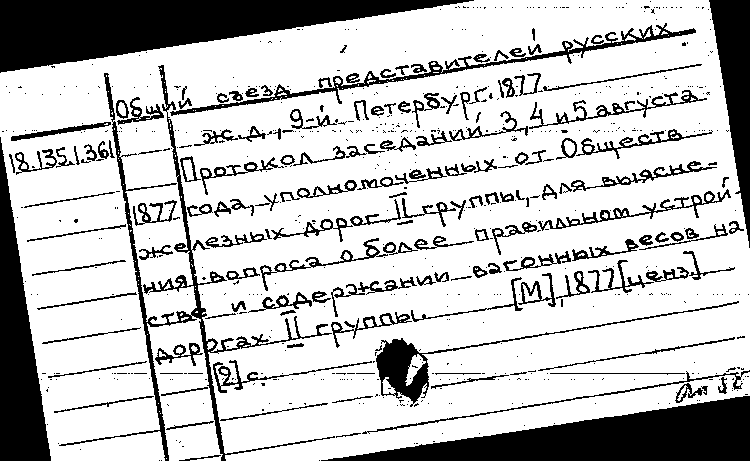 Общий съезд представителей русских
ж.д., 9-й. Петербург. 1877.
18.135.1.361
Протокол заседаний 3,4 и 5 августа
1877 года, уполномоченных от Обществ
железных дорог II группы, для выясне-
ния вопроса о более правильном устрой-
стве и содержании вагонных весов на
дорогах II группы. [М], 1877 [ценз].
[2] с.